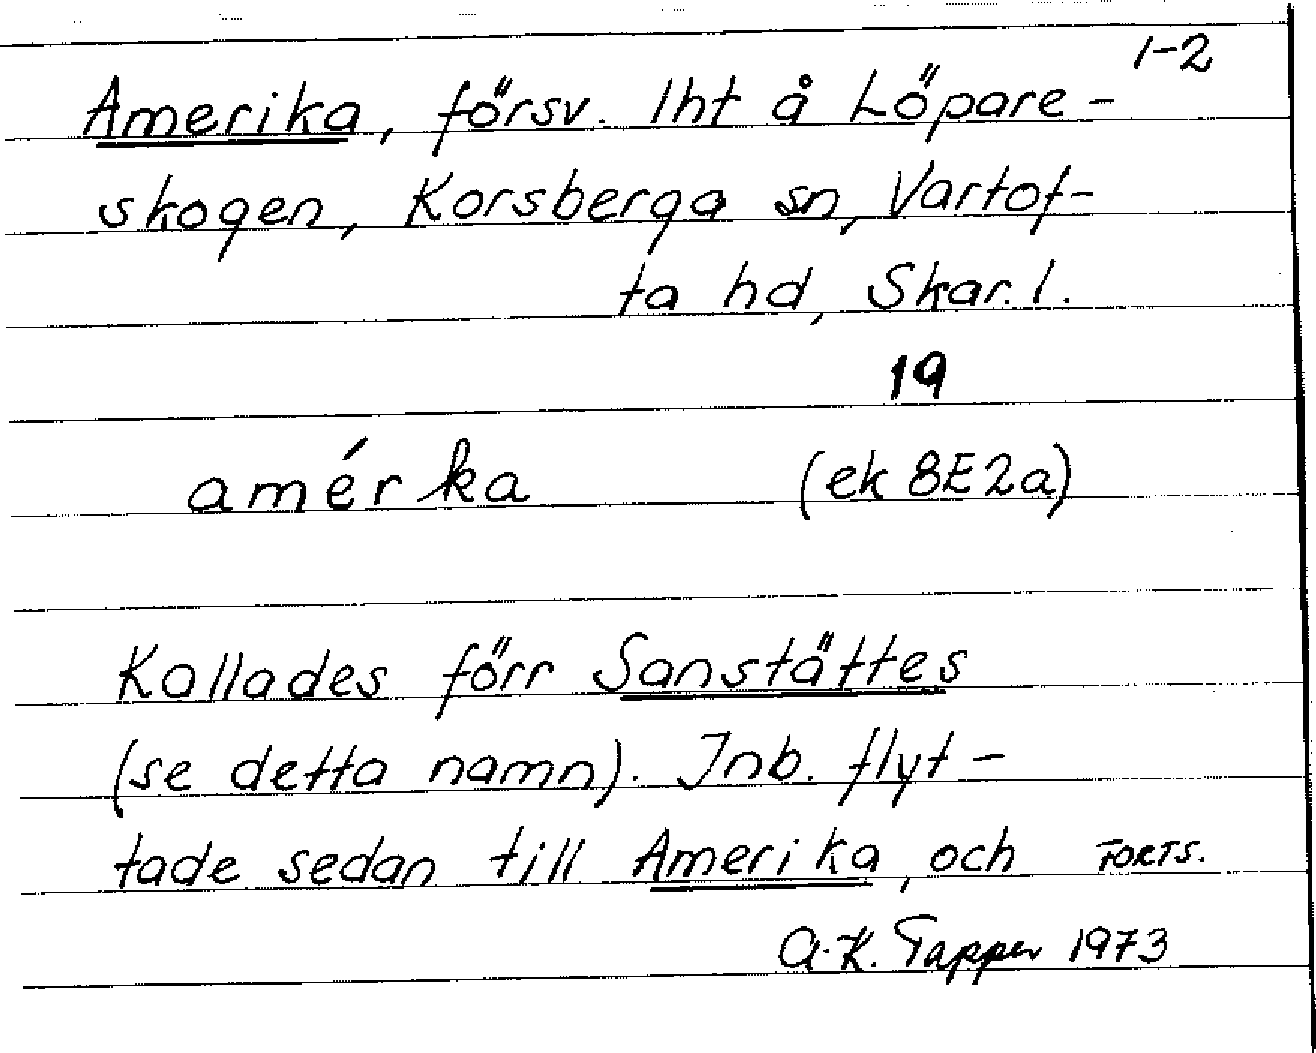 1-2
Amerika, försv. lht å Löpare-
skogen, Korsberga sn, Vartof-
ta hd, Skar. l.
19
amérka (ek 8E2a)
Kallades förr Sanstättes
(se detta namn). Inb. flyt-
tade sedan till Amerika, och FORTS.
A.-K. Tapper 1973